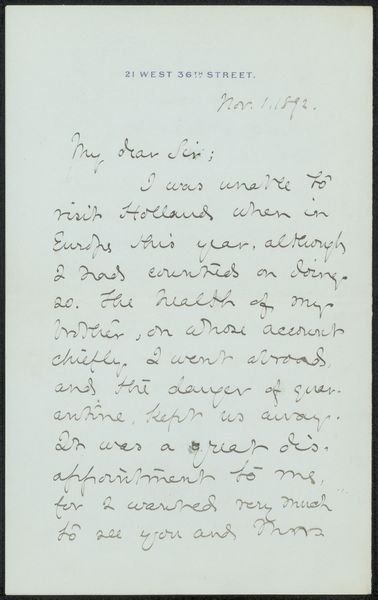 21 WEST 36TH STREET.
Nov. 1. 1892.
My dear Sir;
I was unable to
visit Holland when in
Europe this year, although
I had counted on doing
so. The health of my
brother, on whose account
chiefly I went abroad,
and the danger of quar-
antine, kept us away.
It was a great dis-
appointment to me,
for I wanted very much
to see you and